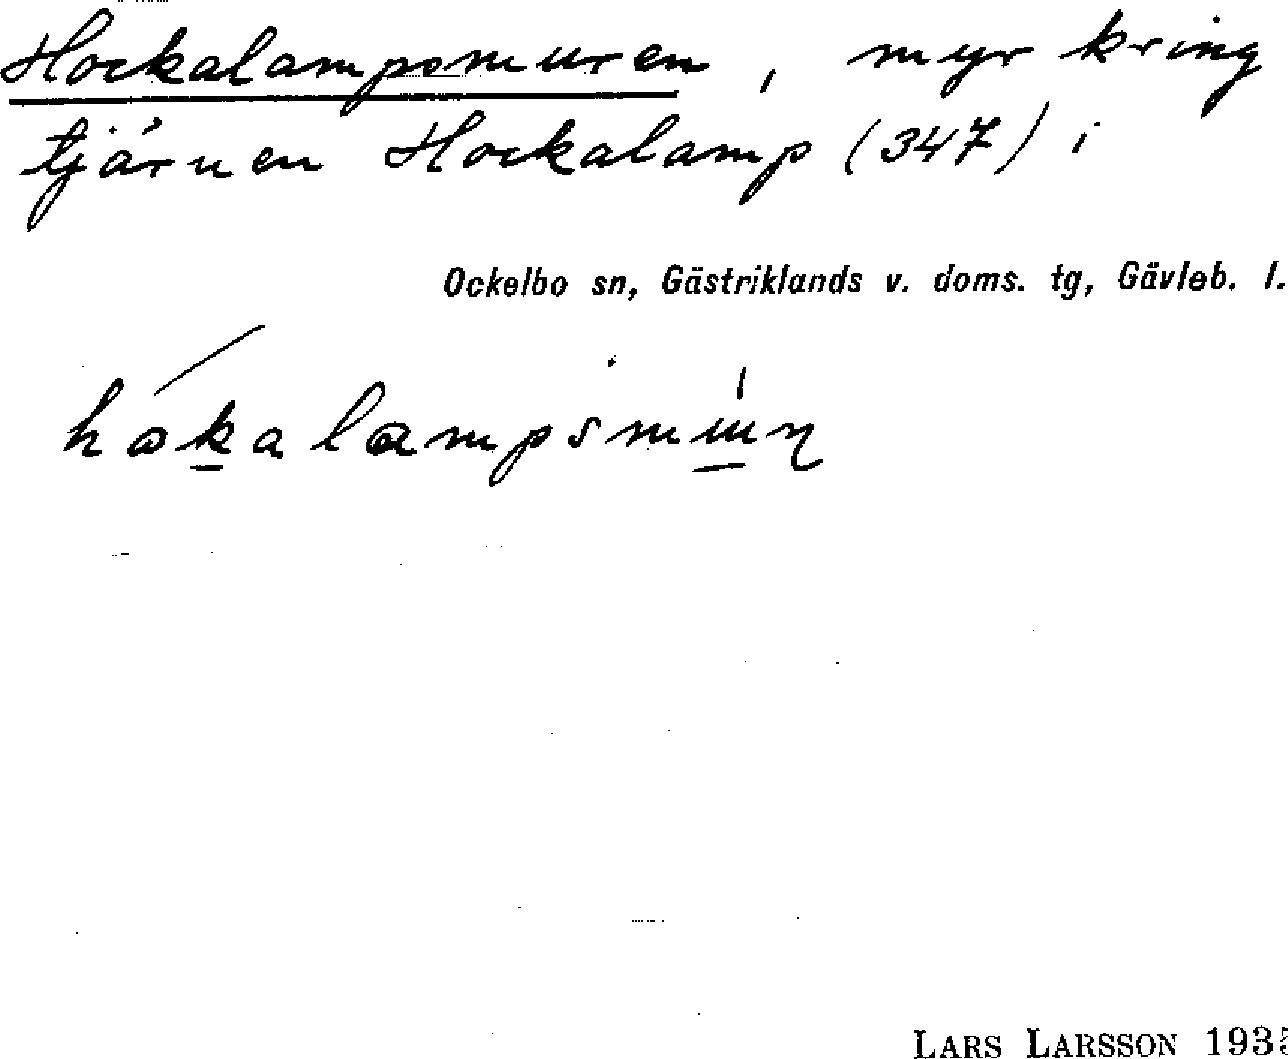 Hockalampsmuren, myr kring
tjärnen Hockalamp (347) i
Ockelbo sn, Gästriklands v. doms. tg, Gävleb. l.
LARS LARSSON 1935